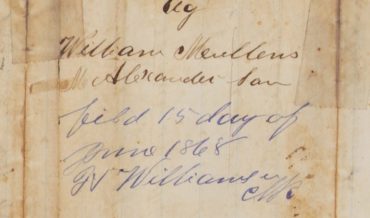 William Meullens
M Alexander Law
fild 15 day of
June 1868
GV Williams